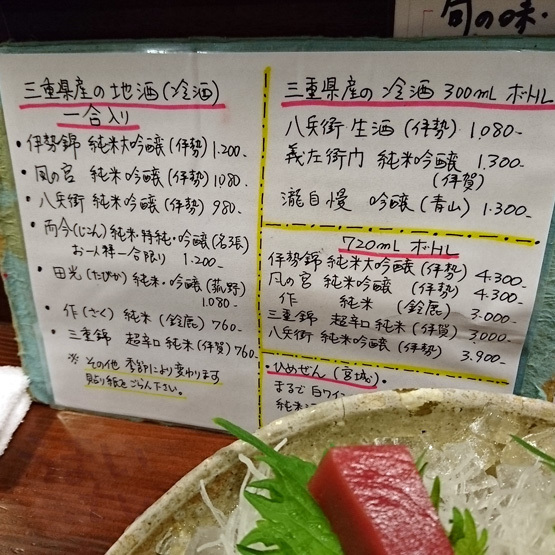 旬の味
三重県産の地酒(冷酒)
一合入り
・伊勢錦 純米大吟醸(伊勢)1.200-
・風の宮 純米吟醸(伊勢)1080-
・八兵衛 純米吟醸(伊勢) 980-
・而今(じこん)純米・特純・吟醸(名張)
お一人様一合限り 1.200-
・田光(たびか)純米・吟醸(菰野)
1.080-
・作(さく)純米(鈴鹿)760-
・三重錦 超辛口純米(伊賀)760-
※その他 季節により変わります
貼り紙をごらん下さい。
三重県産の 冷酒 300mL ボトル
八兵衛 生酒(伊勢)1.080-
義左衛門 純米吟醸 1.300-
(伊賀)
瀧自慢 吟醸(青山)1.300-
720mL ボトル
伊勢錦 純米大吟醸(伊勢)4.300-
風の宮 純米吟醸(伊勢)4.300-
作 純米 (鈴鹿) 3.000-
三重錦 超辛口純米(伊賀)3,000-
八兵衛 純米吟醸(伊勢) 3.900-
・ひめぜん(宮城)・
まるで白ワイン
純米